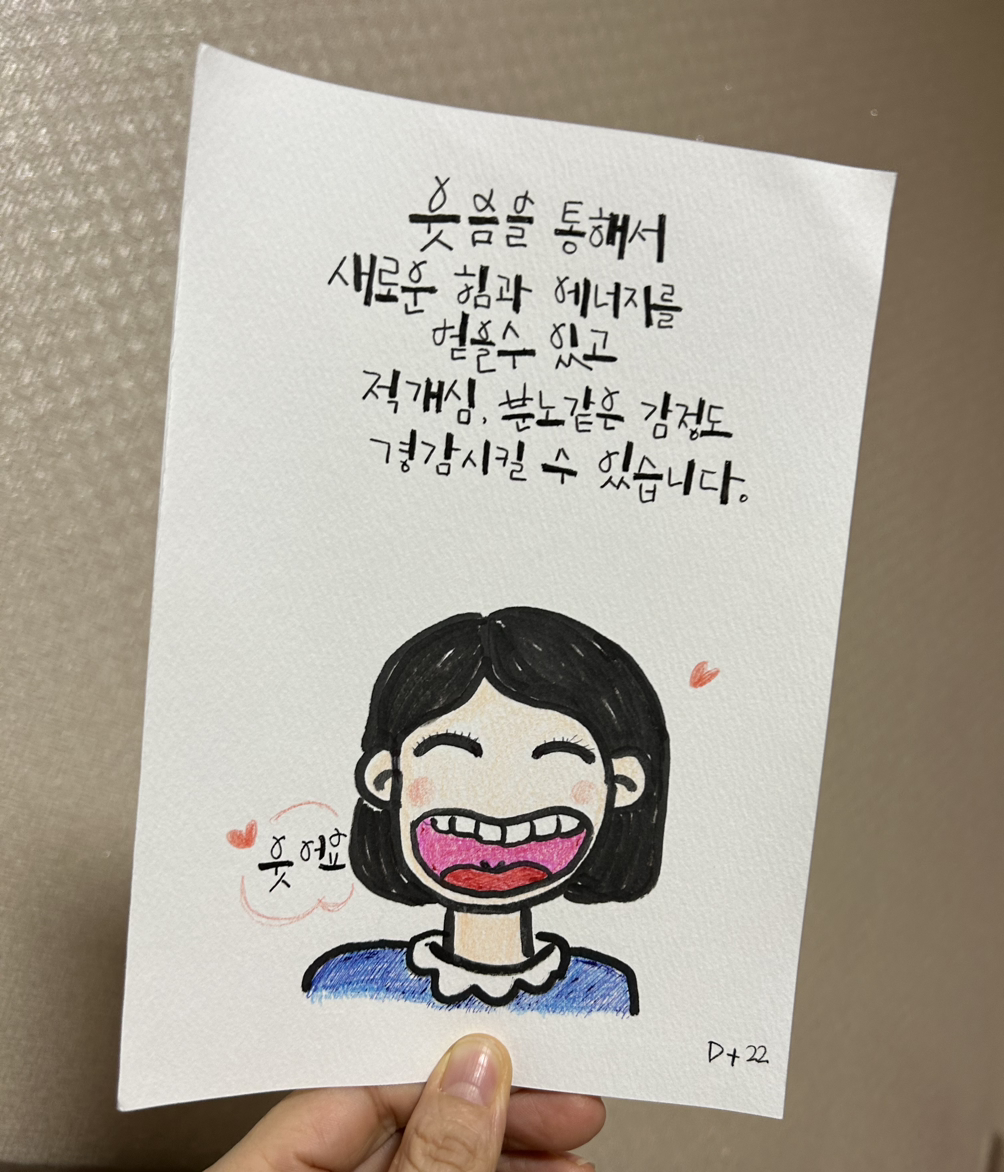 웃음을 통해서
새로운 힘과 에너지를
얻을수 있고
적개심, 분노같은 감정도
경감시킬 수 있습니다.
웃어요
D+22